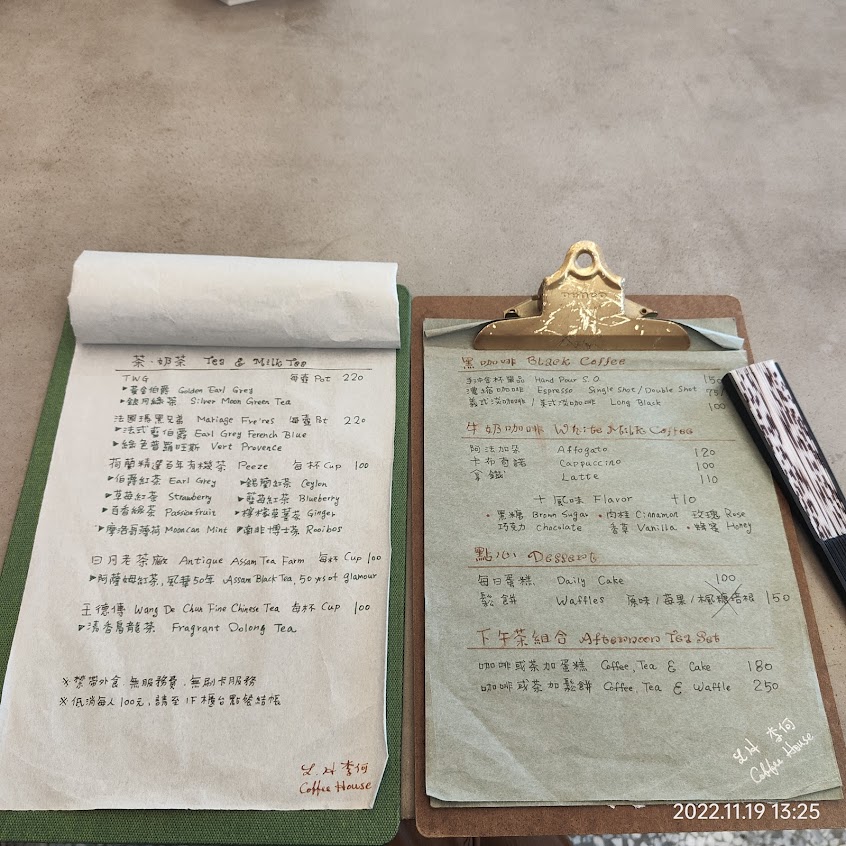 茶·奶茶 Tea & Milk Tea
TWG 每壺 Pot 220
▸黃金伯爵 Golden Earl Grey
▸銀月綠茶 Silver Moon Green Tea
法國瑪黑兄弟 Mariage Fre'res 每壺 Pot 220
▸法式藍伯爵 Earl Grey Ferench Blue
▸綠色普羅旺斯 Vert Provence
荷蘭精選百年有機茶 Peeze 每杯 Cup 100
▸伯爵紅茶 Earl Grey ▸錫蘭紅茶 Ceylon
▸草莓紅茶 Strawberry ▸藍莓紅茶 Blueberry
▸百香綠茶 Passionfruit ▸檸檬草薑茶 Ginger
▸摩洛哥薄荷 Mooncan Mint ▸南非博士茶 Rooibos
日月老茶廠 Antique Assam Tea Farm 每杯 Cup 100
▸阿薩姆紅茶,風華50年 Assam Black Tea, 50 yrs of glamour
王德傳 Wang De Chua Fine Chinese Tea 每杯 Cup 100
▸清香烏龍茶 Fragrant Oolong Tea
※禁帶外食.無服務費.無刷卡服務
※低消每人100元,請至1F櫃台點餐結帳
L.H 李何
Coffee House
黑咖啡 Black Coffee
手沖含杯單品 Hand Pour S.O. 150
濃縮咖啡 Espresso Single Shot/Double Shot 75/
義式淡咖啡/美式淡咖啡 Long Black 100
牛奶咖啡 White Milk Coffee
阿法加朵 Affogato 120
卡布奇諾 Cappuccino 100
拿鐵 Latte 110
+風味 Flavor +10
·黑糖 Brown Sugar ·肉桂 Cinnamon 玫瑰 Rose
巧克力 Chocolate 香草 Vanilla ·蜂蜜 Honey
點心 Dessert
每日蛋糕 Daily Cake 100
鬆餅 Waffles 原味/莓果/楓糖培根 150
下午茶組合 Afternoon Tea Set
咖啡或茶加蛋糕 Coffee, Tea & Cake 180
咖啡或茶加鬆餅 Coffee, Tea & Waffle 250
L.H 李何
Coffee House
2022.11.19 13:25